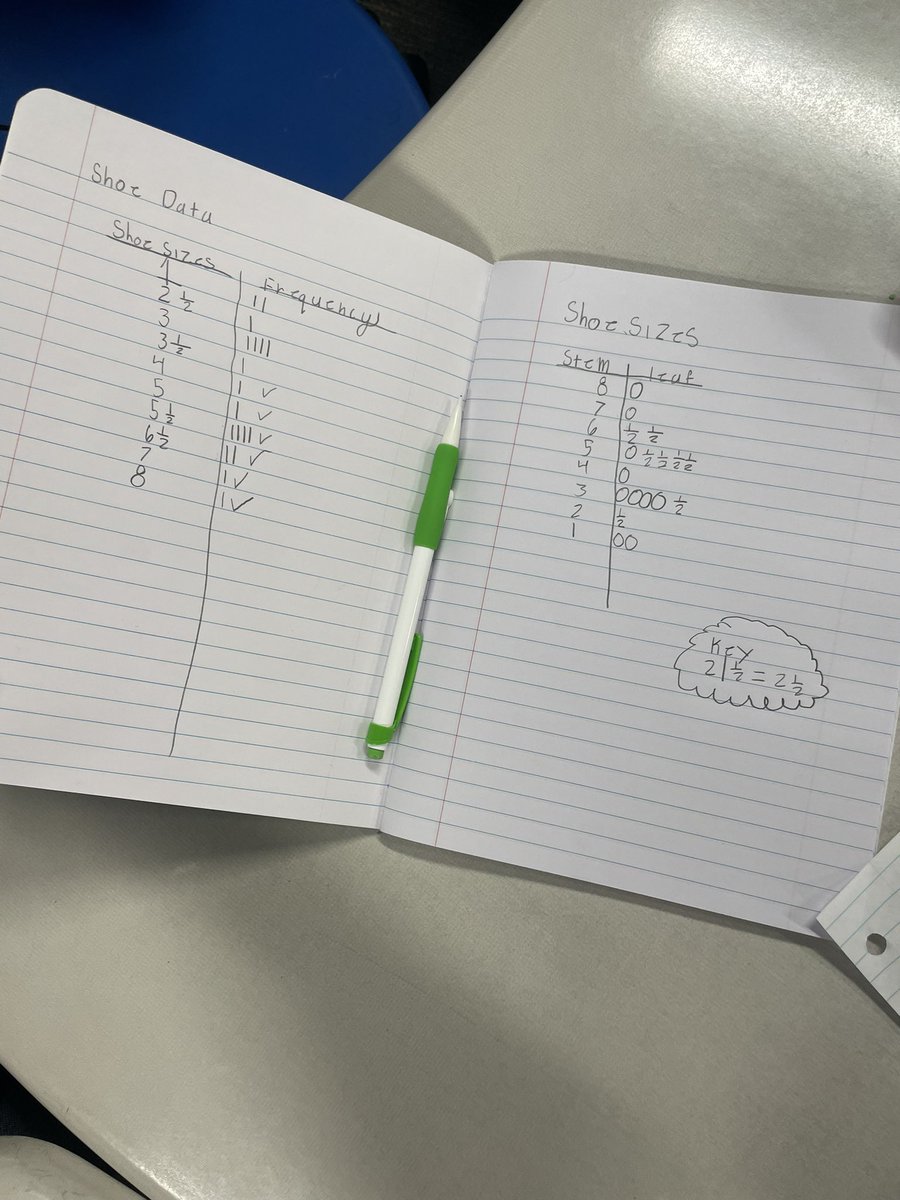 Shoe Data
Shoe Sizes | Frequency
1 | ||
2 1/2 | |
3 | ||||
3 1/2 | |
4 | | ✓
5 | | ✓
5 1/2 | |||| ✓
6 1/2 | || ✓
7 | | ✓
8 | | ✓
Shoe Sizes
Stem | leaf
8 | 0
7 | 0
6 | 1/2 1/2
5 | 0 1/2 1/2 1/2 1/2
4 | 0
3 | 0000 1/2
2 | 1/2
1 | 00
KEY
2 | 1/2 = 2 1/2